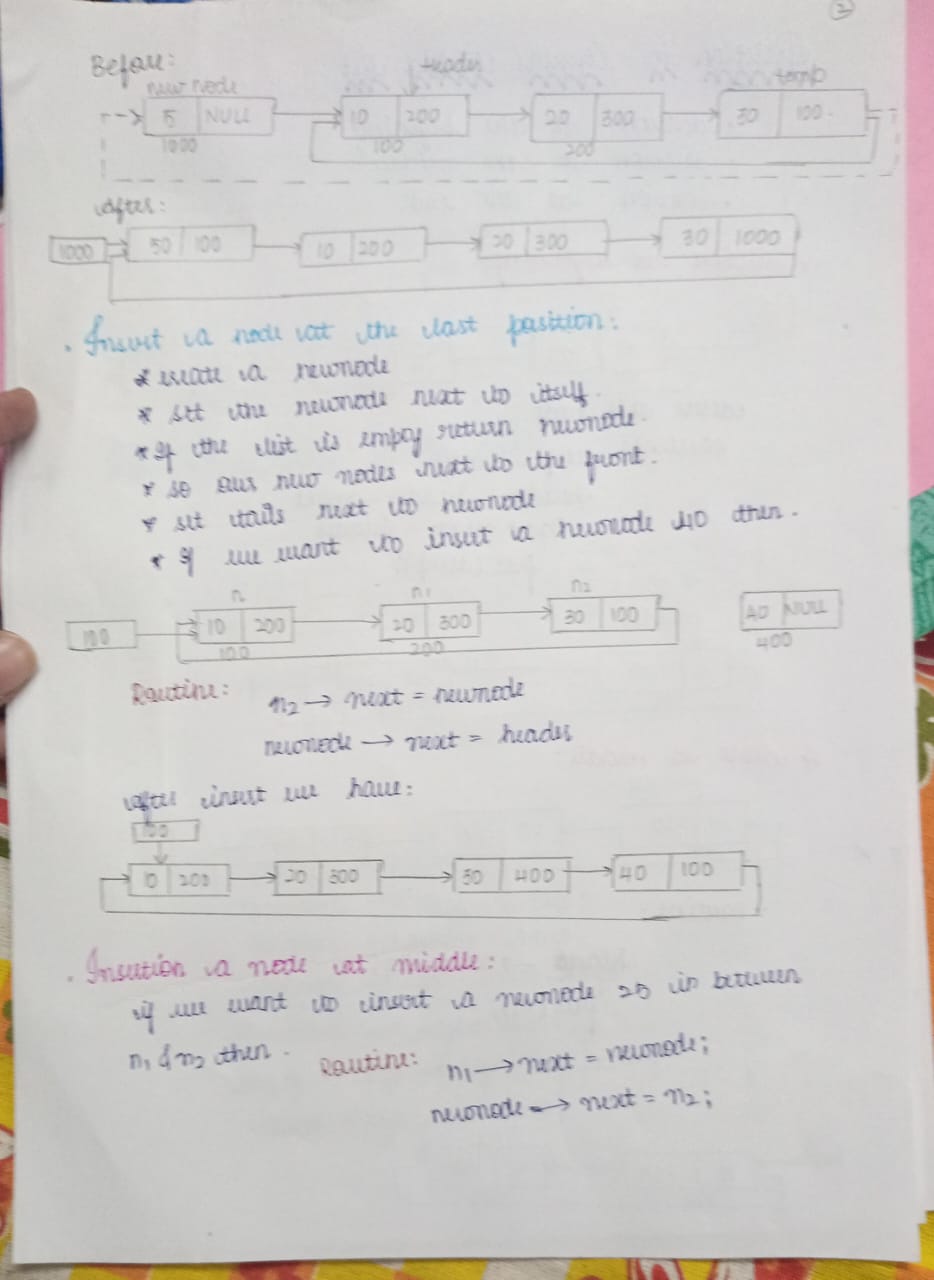 2
Before:
new node header temp
5 NULL 10 200 20 300 30 100
1000 100 200
After:
1000 50 100 10 200 20 300 30 1000
. Insert a node at the last position:
* create a newnode
* set the newnode next to itself.
* If the list is empy return newnode.
* so our new nodes next to the front.
* set tails next to newnode
* If we want to insert a newnode 40 then.
n n1 n2
100 10 200 20 300 30 100 40 NULL
100 200 400
Routine: n2 → next = newnode
newnode → next = header
after insert we have:
100
10 200 20 300 30 400 40 100
. Insertion a node at middle:
if we want to insert a newnode 25 in between
n1 & n2 then.
Routine: n1 → next = newnode;
newnode → next = n2;